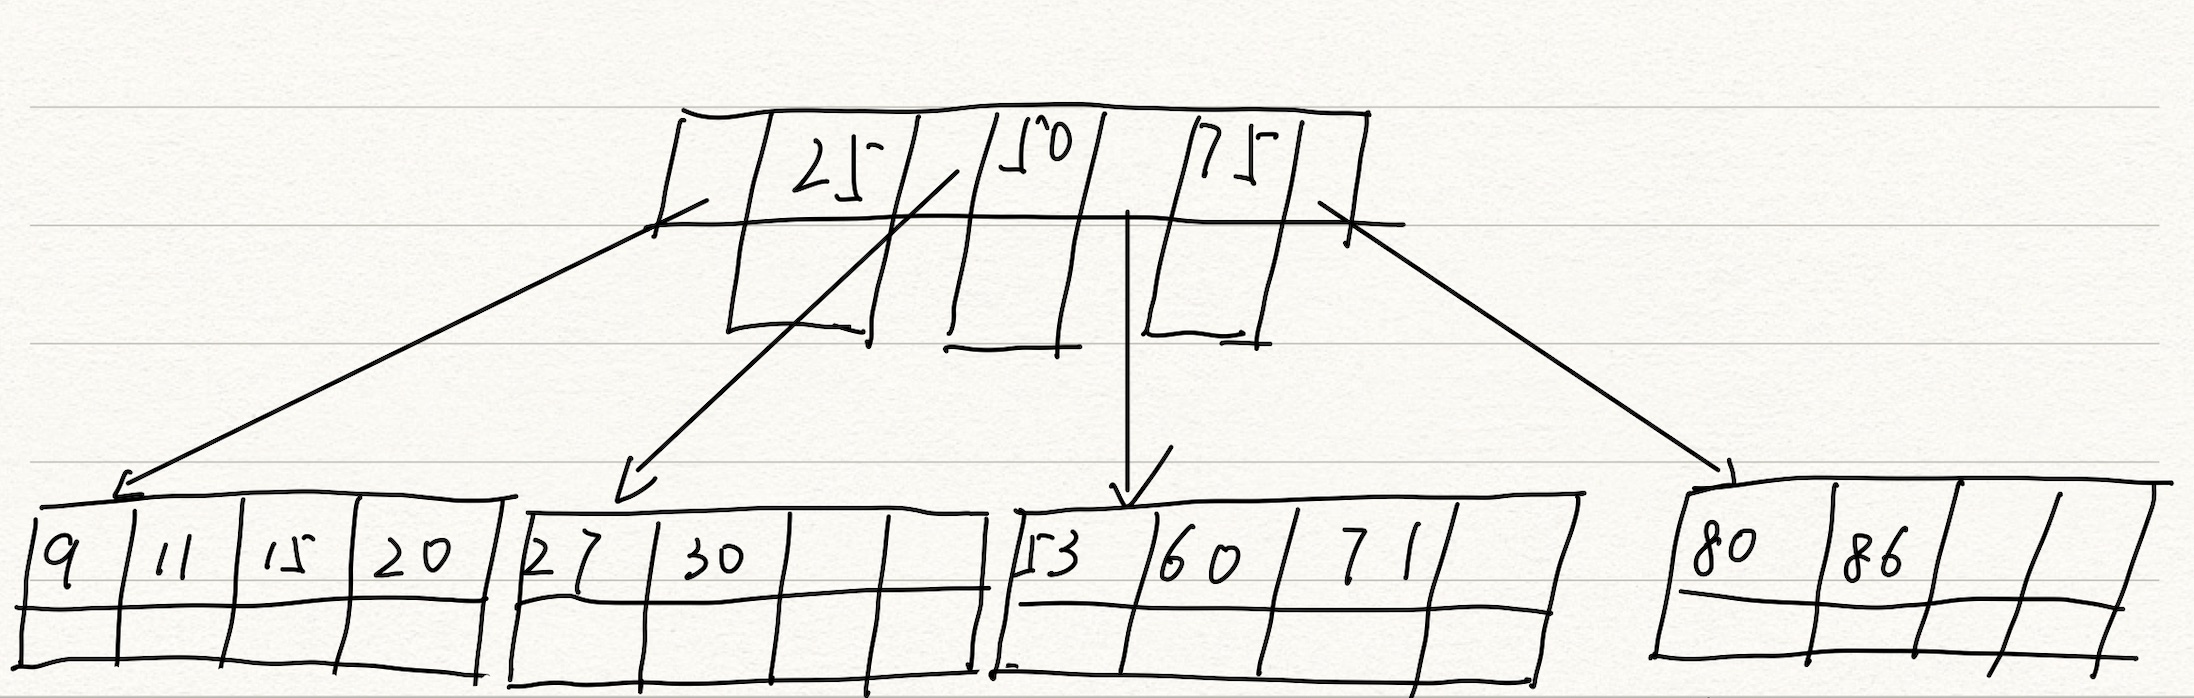 25 50 75
9 11 15 20 27 30 53 60 71 80 86